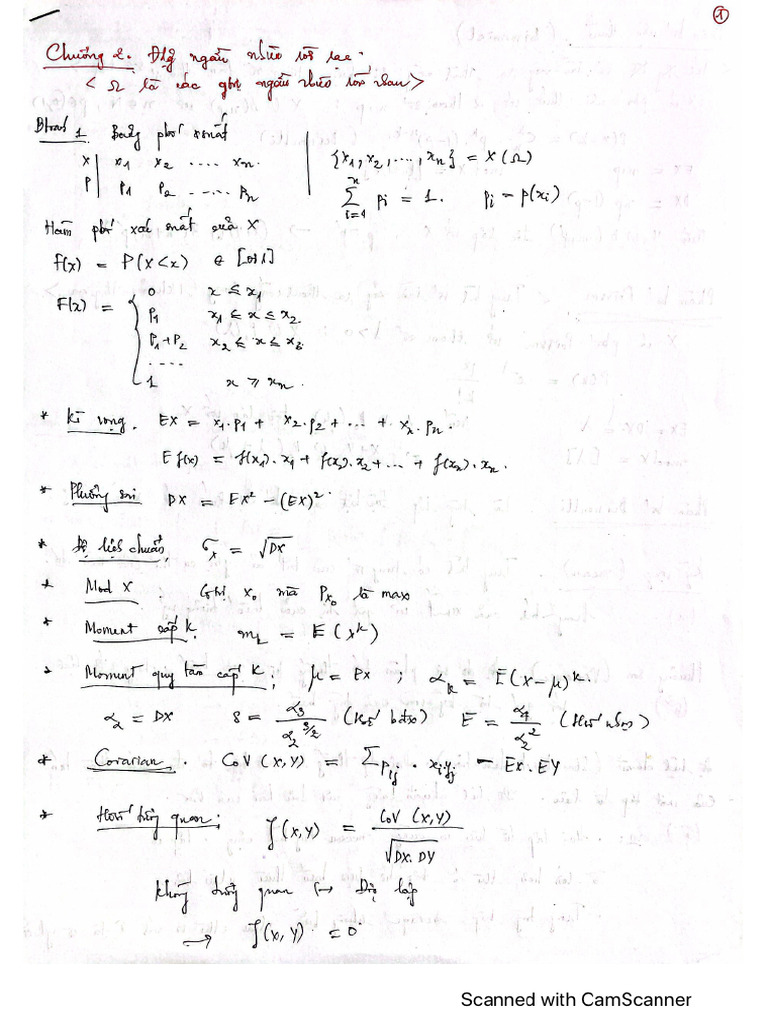 ①
Chương 2. Đlg ngẫu nhiên rời rạc.
< Ω là các gtrị ngẫu nhiên rời nhau >
1. Bảng phối xsuất
X | x₁ x₂ .... xₙ.
P | p₁ p₂ ..... pₙ
{x₁, x₂, ..., xₙ} = X(Ω)
∑ᵢ₌₁ⁿ pᵢ = 1. pᵢ = p(xᵢ)
Hàm phối xác suất của X
f(x) = P(X<x) ∈ [0,1]
F(x) = { 0 x ≤ x₁
p₁ x₁ ≤ x ≤ x₂
p₁+p₂ x₂ ≤ x ≤ x₃
....
1 x ⩾ xₙ.
* Kì vọng. EX = x₁.p₁ + x₂.p₂ + ... + xₙ.pₙ.
E f(x) = f(x₁).x₁ + f(x₂).x₂ + ... + f(xₙ).xₙ.
* Phương sai DX = EX² − (EX)².
* Độ lệch chuẩn σₓ = √DX
* Mod X : Gtrị x₀ mà Pₓ₀ là max
* Moment cấp k. mₖ = E(xᵏ)
* Moment quy tâm cấp k; μ = EX ; αₖ = E(X−μ)ᵏ.
α₂ = DX S = α₃/α₂^(3/2) E = α₄/α₂²
* Covarian. COV(X,Y) = ∑pᵢⱼ . xᵢyⱼ − EX.EY
* tương quan; ʃ(X,Y) = COV(X,Y)/√DX.DY
Không tương quan ↦ Độc lập
→ ʃ(X,Y) = 0
Scanned with CamScanner